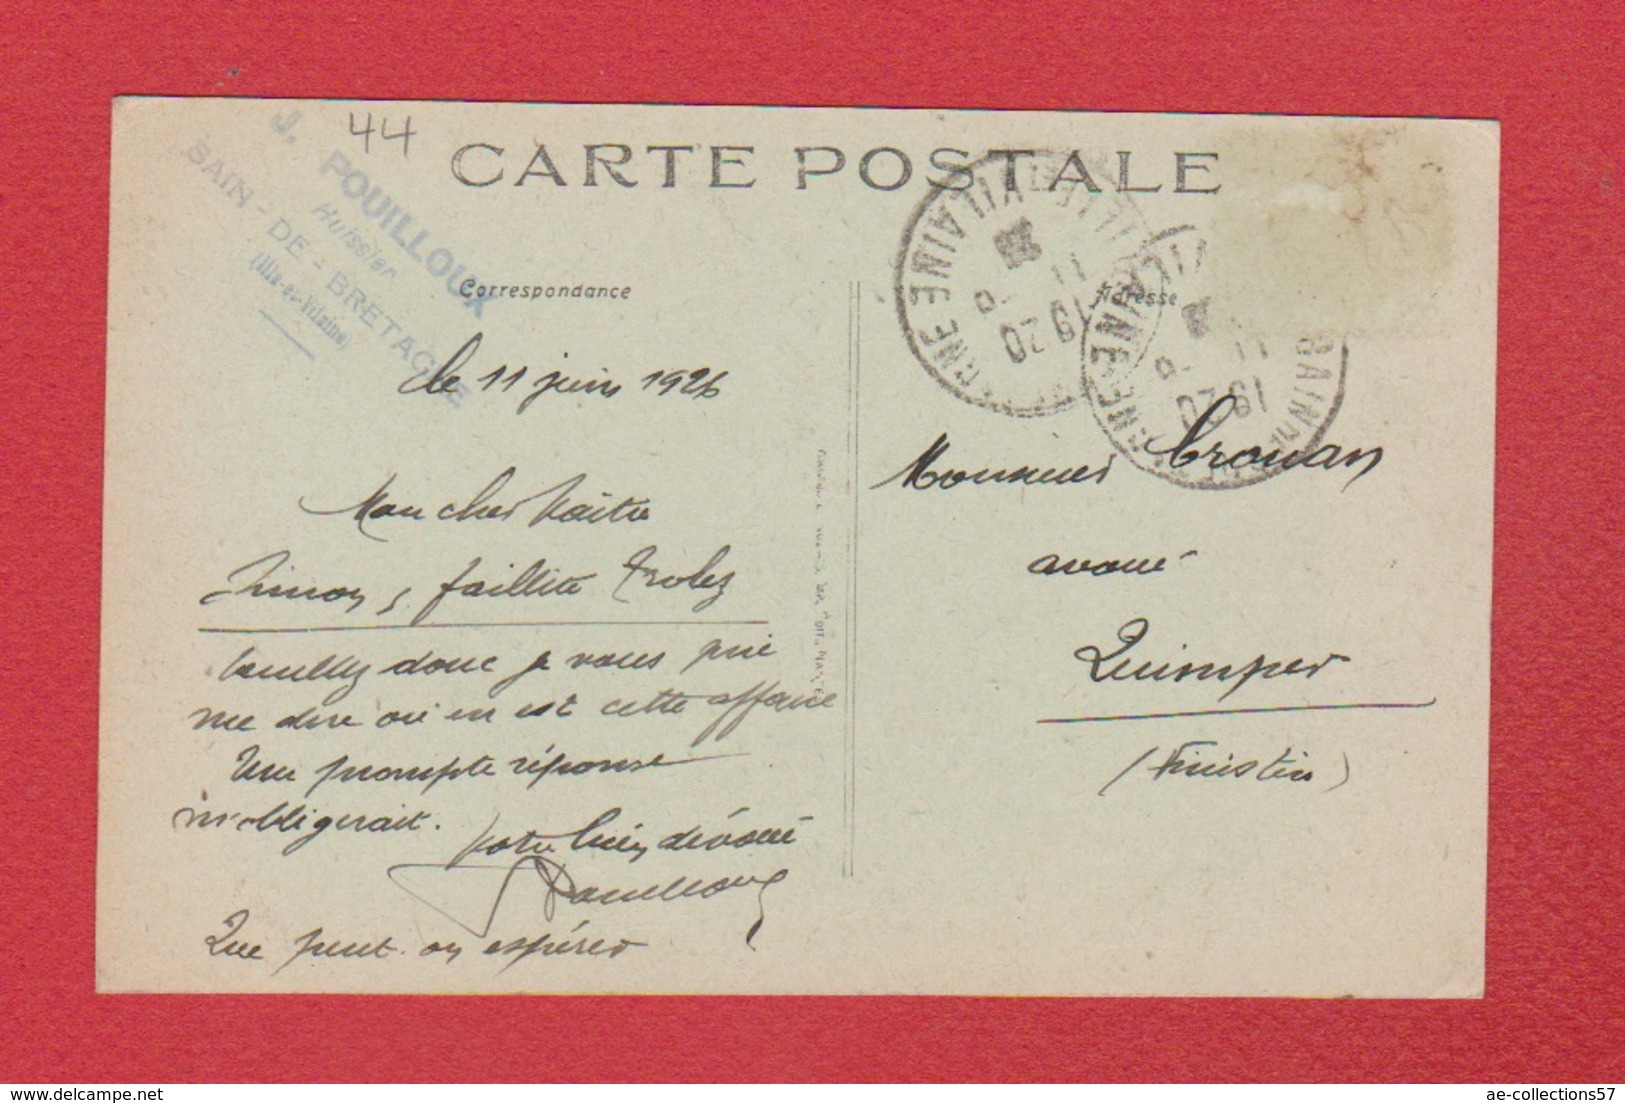 44
J. POUILLOUX
Huissier
BAIN-DE-BRETAGNE
(Ille-et-Vilaine)
CARTE POSTALE
Correspondance
Adresse
ILLE-ET-VILAINE
11
19 20
BAIN DE
11
19 20
ILLE-ET-VILAINE
le 11 juin 1926
Mon cher Maitre
Simon, faillite Trobez
Veuillez donc je vous prie
me dire où en est cette affaire
Une prompte réponse
m'obligerait.
Votre bien dévoué
Pouilloux
Que peut on espérer
Monsieur Crouan
avoué
Quimper
(Finistère)
ae-collections57